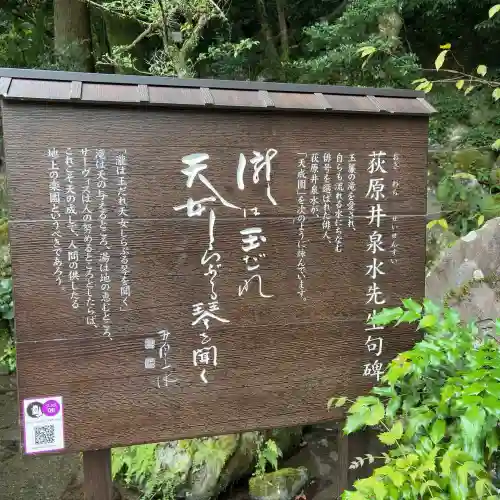 おぎ わら せい せん すい
荻原井泉水先生句碑
玉簾の滝を愛され、
自らも流れる水にちなむ
俳号を選ばれた俳人、
荻原井泉水が、
「天成園」を次のように詠んでいます。
瀧は玉だれ
天女しらぶる琴を聞く
井泉水
「瀧は玉だれ天女しらぶる琴を聞く」
滝は天の与するところ、湯は地の恵むところ、
サーヴィスは人の努めるところとしたらば、
これこそ天の成して、人間の倶したる
地上の楽園というべきであろう。